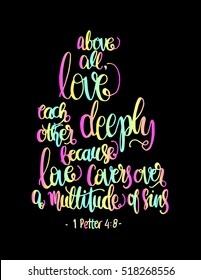 above
all,
love
each
other deeply
because
love covers over
a multitude of sins
- 1 Petter 4:8 -
www.shutterstock.com · 518268556